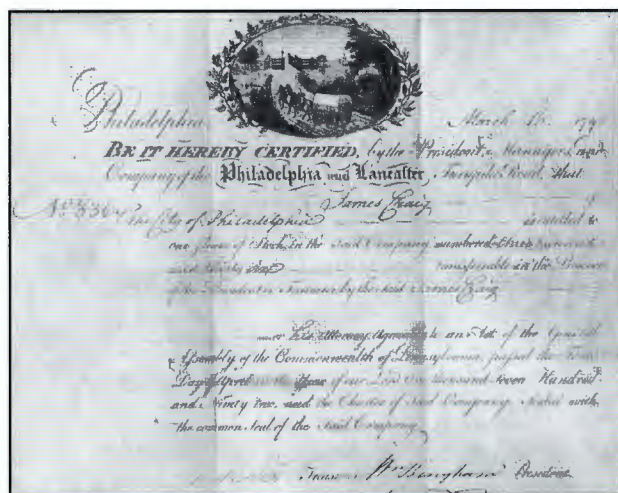 Philadelphia March 15. 179
BE IT HEREBY CERTIFIED, by the President, Managers, and
Company of the Philadelphia and Lancaster Turnpike Road, that
No. James Craig of
the City of Philadelphia is entitled to
one Share of Stock in the Said Company numbered three hundred
and thirty transferable in the Presence
of the President or Treasurer by the said James Craig
or his Attorney, Agreeable to an Act of the General
Assembly of the Commonwealth of Pennsylvania, passed the
Day of April in the Year of our Lord One thousand Seven Hundred
and Ninety two, and the Charter of Said Company, Sealed with
the common Seal of the Said Company.
Wm Bingham President